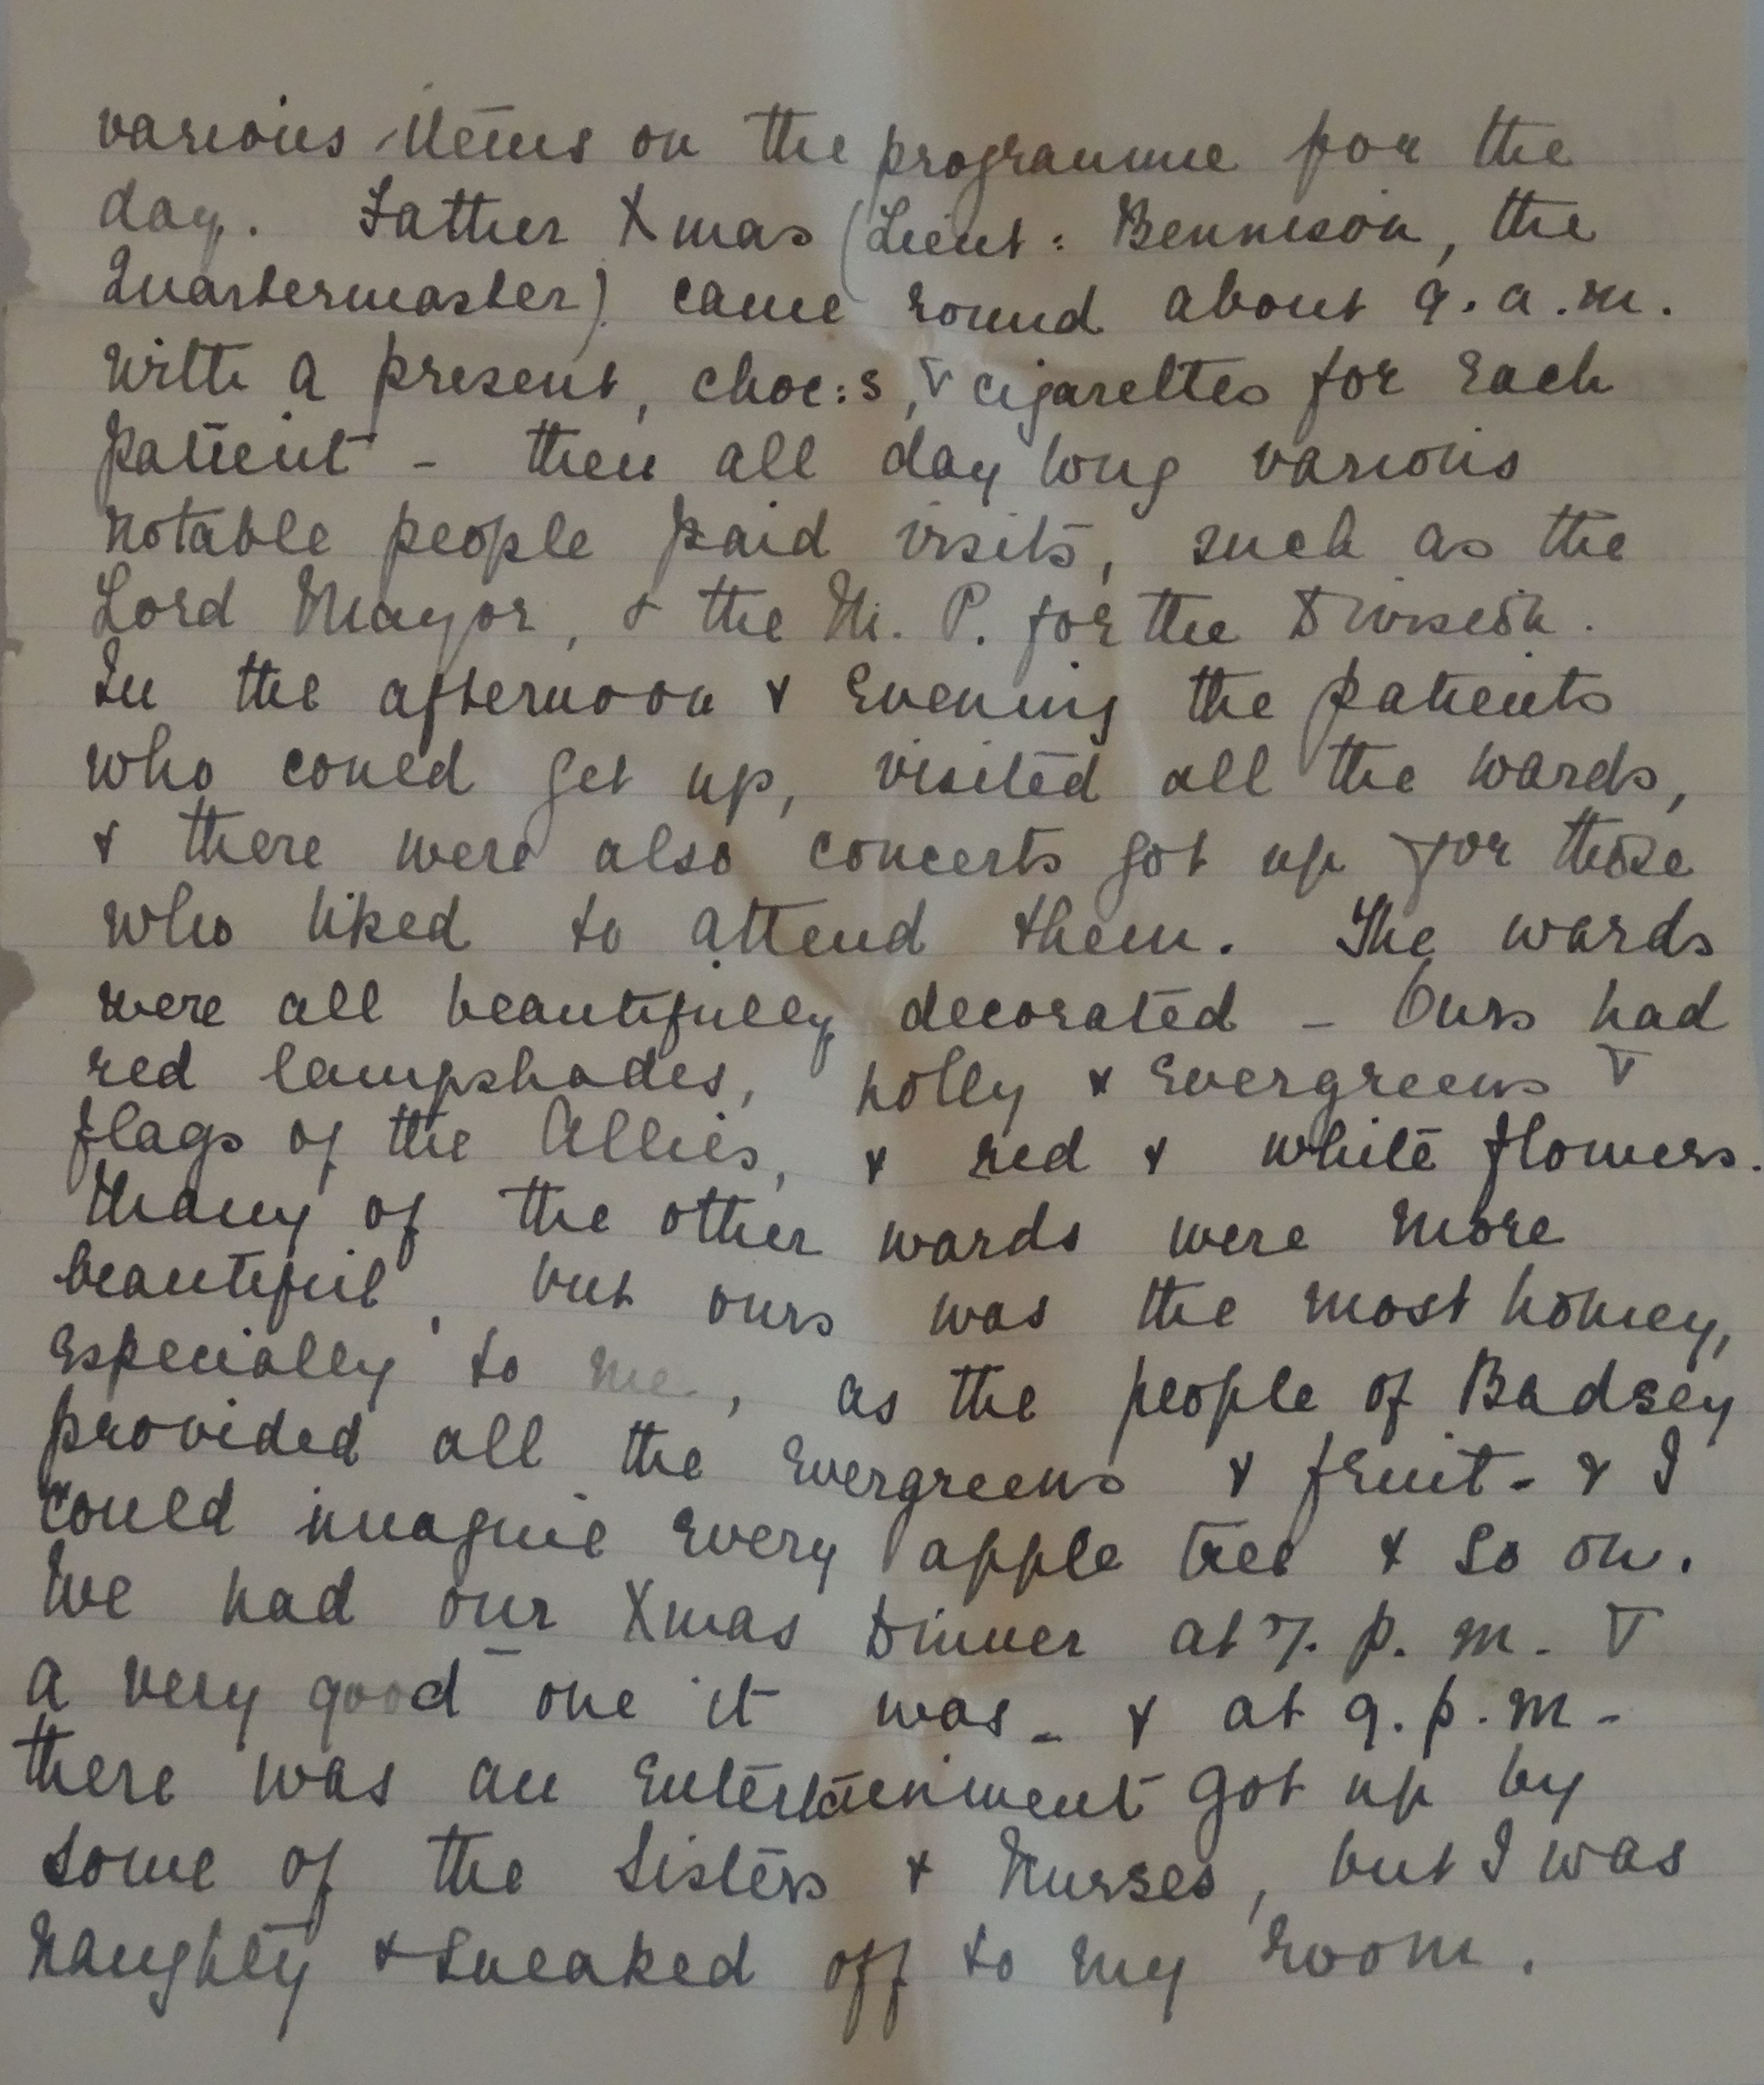 various items on the programme for the
day. Father Xmas (Lieut: Bennison, the
Quartermaster) came round about 9.a.m.
with a present, choc:s, & cigarettes for each
patient - then all day long various
notable people paid visits, such as the
Lord Mayor, & the M.P. for the Division.
In the afternoon & Evening the patients
who could get up, visited all the wards,
& there were also concerts got up for those
who liked to attend them. The wards
were all beautifully decorated - Ours had
red lampshades, holly & Evergreens &
flags of the Allies, & red & white flowers.
Many of the other wards were more
beautiful, but ours was the most homey,
especially to me, as the people of Badsey
provided all the Evergreens & fruit - & I
could imagine Every apple tree & so on.
We had our Xmas Dinner at 7. p. m. &
a very good one it was - & at 9. p. m -
there was an Entertainment got up by
some of the Sisters & Nurses, but I was
naughty & sneaked off to my room.